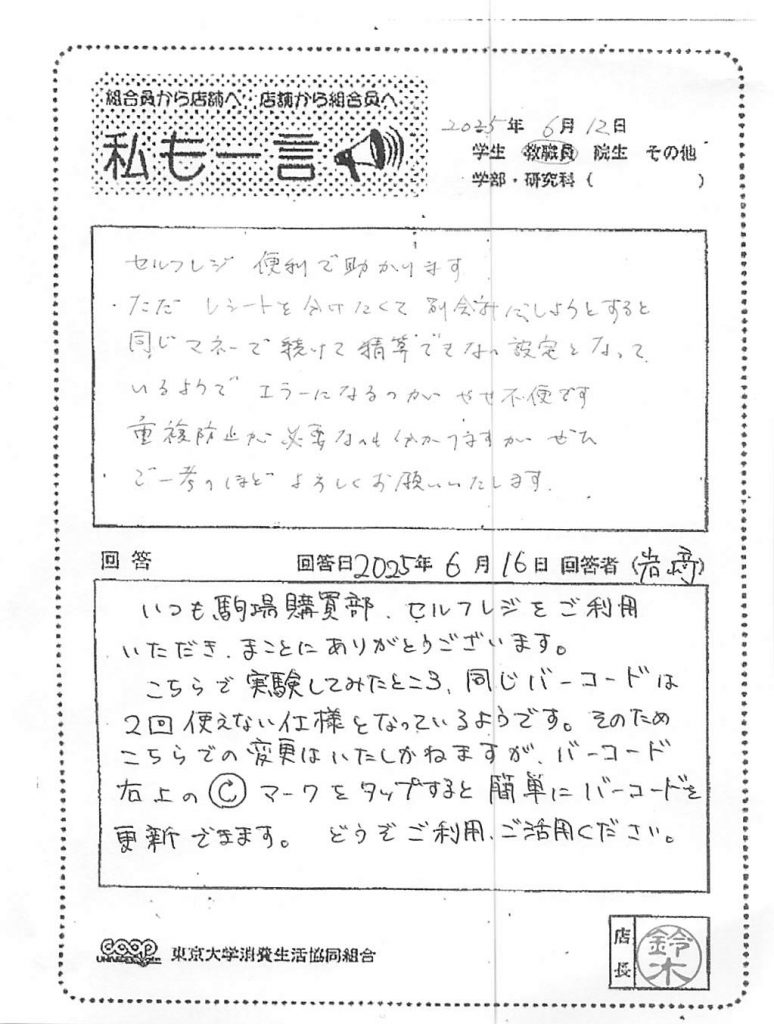 組合員から店舗へ 店舗から組合員へ
私も一言
2025年 6月 12日
学生 教職員 院生 その他
学部・研究科( )
セルフレジ 便利で助かります
ただ レシートを分けたくて 別会計にしようとすると
同じマネーで 続けて 精算できない設定となって
いるようで エラーになるのが やや不便です
重複防止が必要なのも分かりますが ぜひ
ご一考のほど よろしくお願いいたします.
回答 回答日2025年 6月16日 回答者(岩﨑)
いつも駒場購買部、セルフレジをご利用
いただき、まことにありがとうございます。
こちらで実験してみたところ、同じバーコードは
2回使えない仕様となっているようです。そのため
こちらでの変更はいたしかねますが、バーコード
右上の Ⓒ マークをタップすると簡単にバーコードを
更新できます。 どうぞご利用、ご活用ください。
coop 東京大学消費生活協同組合
店長 鈴木